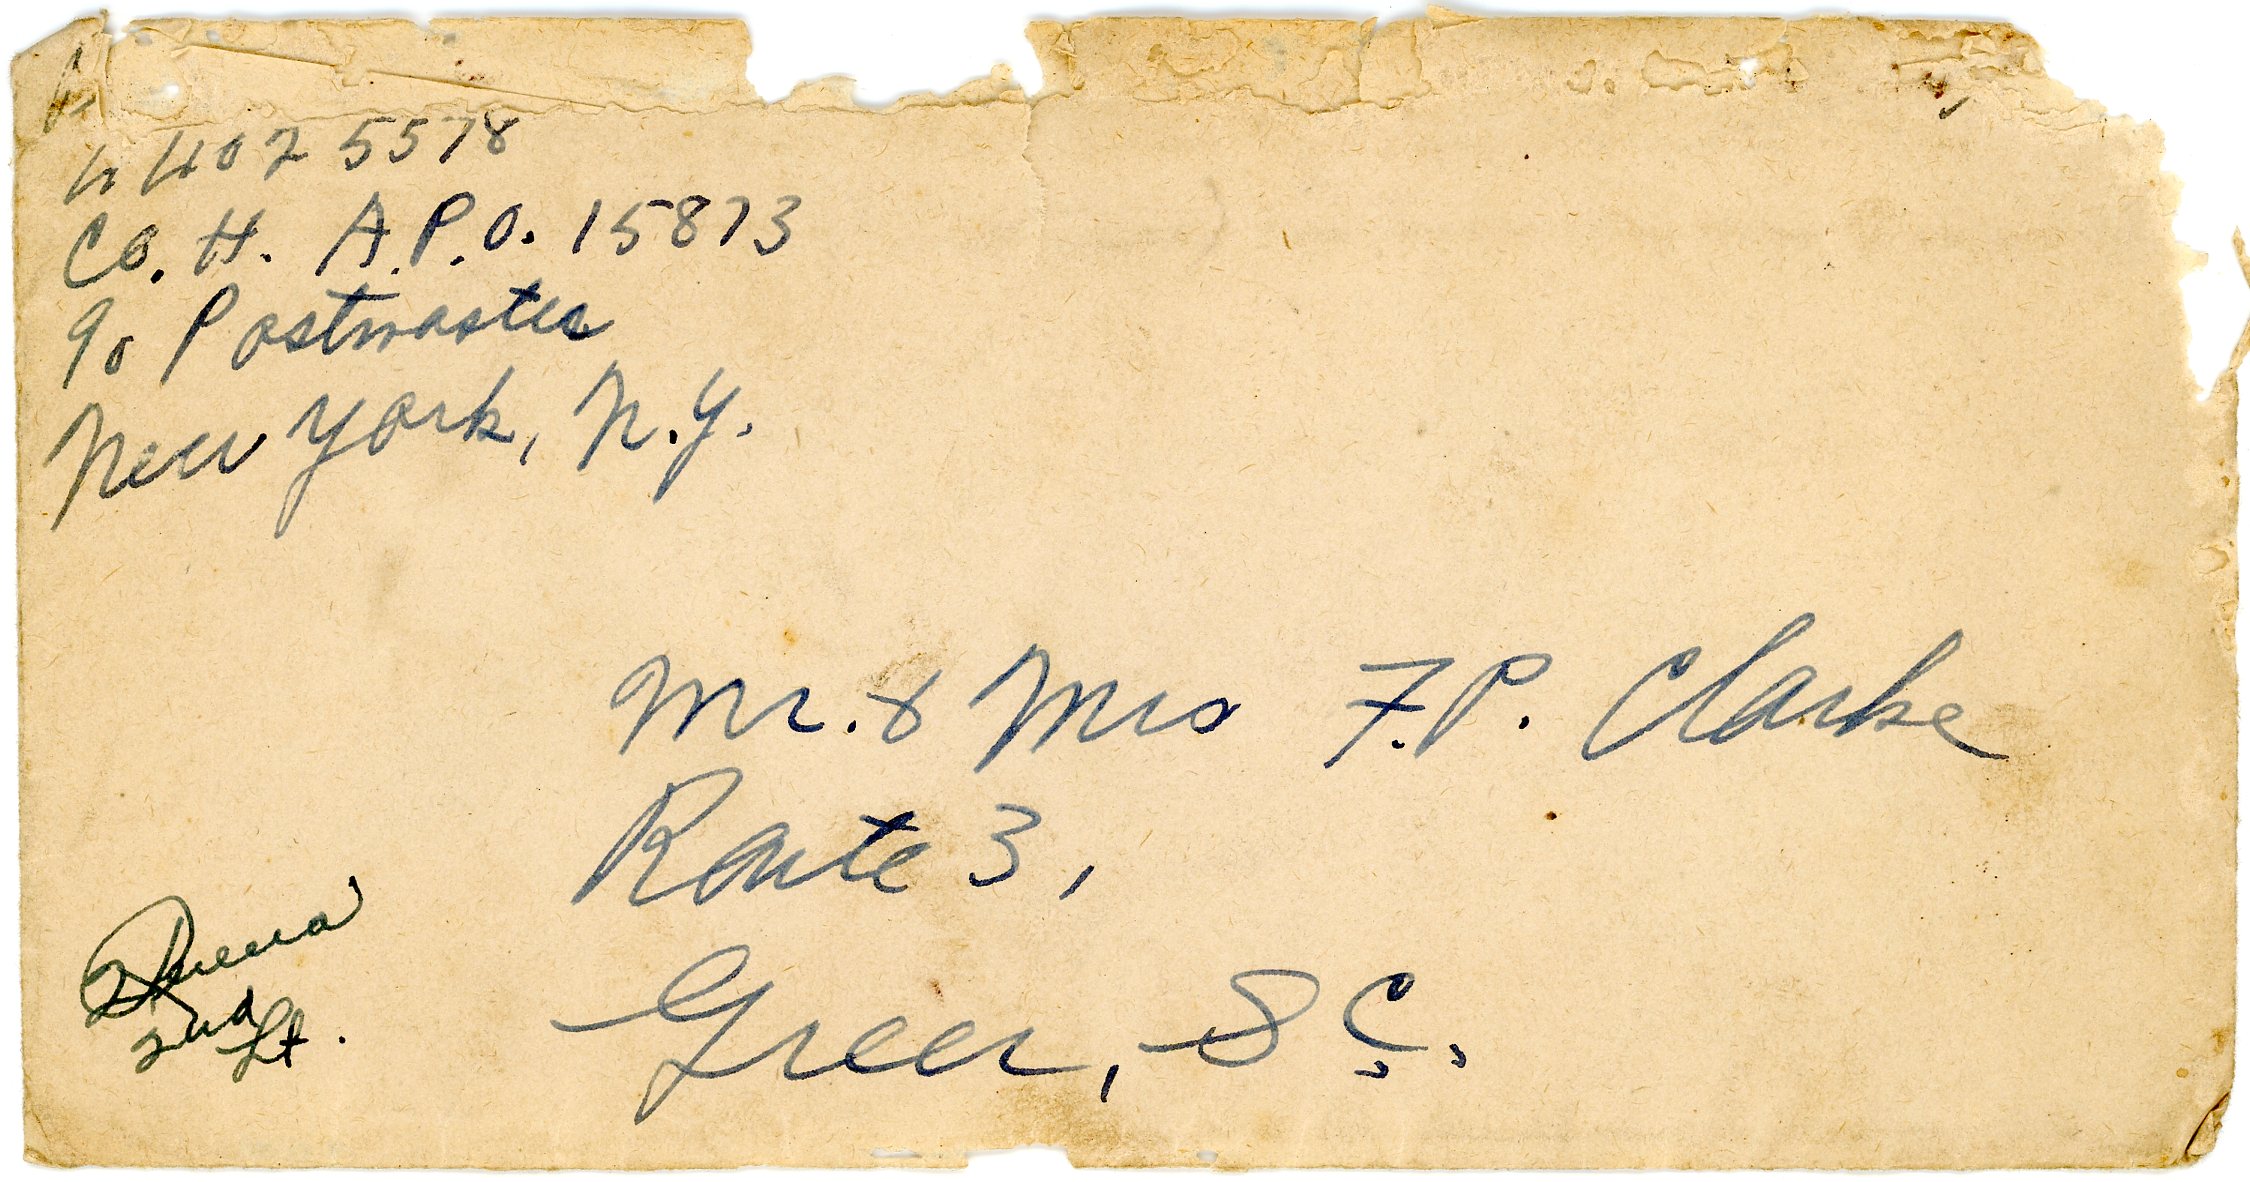 44025578
Co. H. A.P.O. 15873
% Postmaster
New York, N.Y.
Mr. & Mrs F.P. Clarke
Route 3,
Greer, S.C.
2nd Lt.